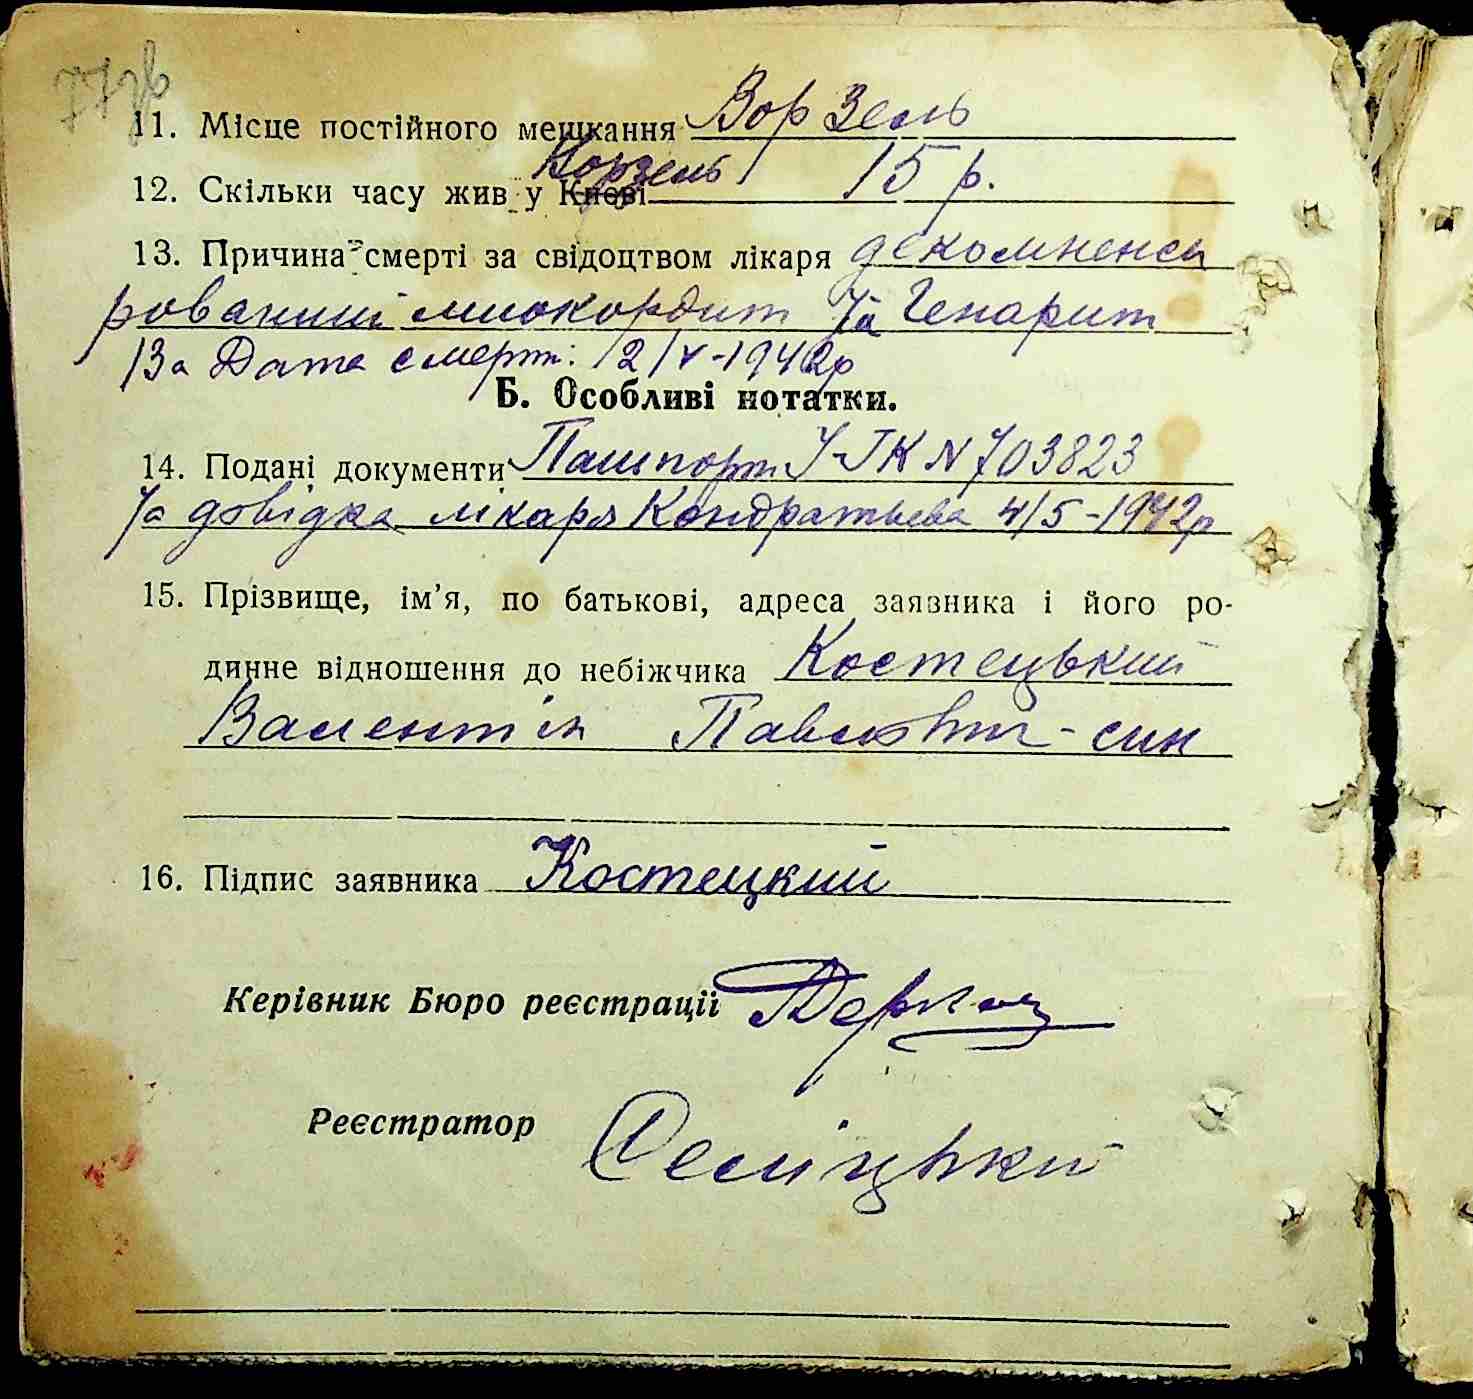 77зв
11. Місце постійного мешкання Ворзель
Ворзель
12. Скільки часу жив у Києві 15 р.
13. Причина смерті за свідоцтвом лікаря декомпенси
рований миокордит та Гепарит
13а Дата смерт: 2/V-1942р
Б. Особливі нотатки.
14. Подані документи Пашпорт У-ГК N 703823
та довідка лікаря Кондратьева 4/5-1942р
15. Прізвище, ім’я, по батькові, адреса заявника і його ро-
динне відношення до небіжчика Костецький
Валентін Павлович - син
16. Підпис заявника Костецкий
Керівник Бюро реєстрації Деркач
Реєстратор